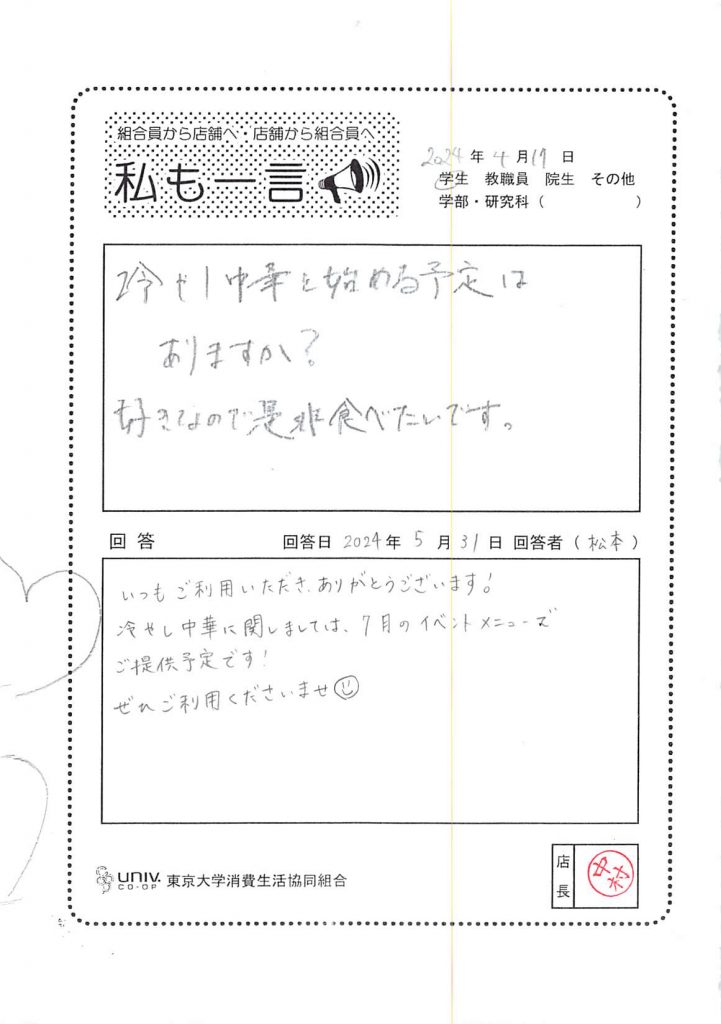 組合員から店舗へ・店舗から組合員へ
私も一言
2024年 4月19日
学生 教職員 院生 その他
学部・研究科（ ）
冷やし中華を始める予定は
ありますか？
好きなので是非食べたいです。
回答 回答日 2024年 5月31日 回答者（松本）
いつもご利用いただき、ありがとうございます！
冷やし中華に関しましては、7月のイベントメニューで
ご提供予定です！
ぜひご利用くださいませ
UNIV. CO-OP 東京大学消費生活協同組合
店長